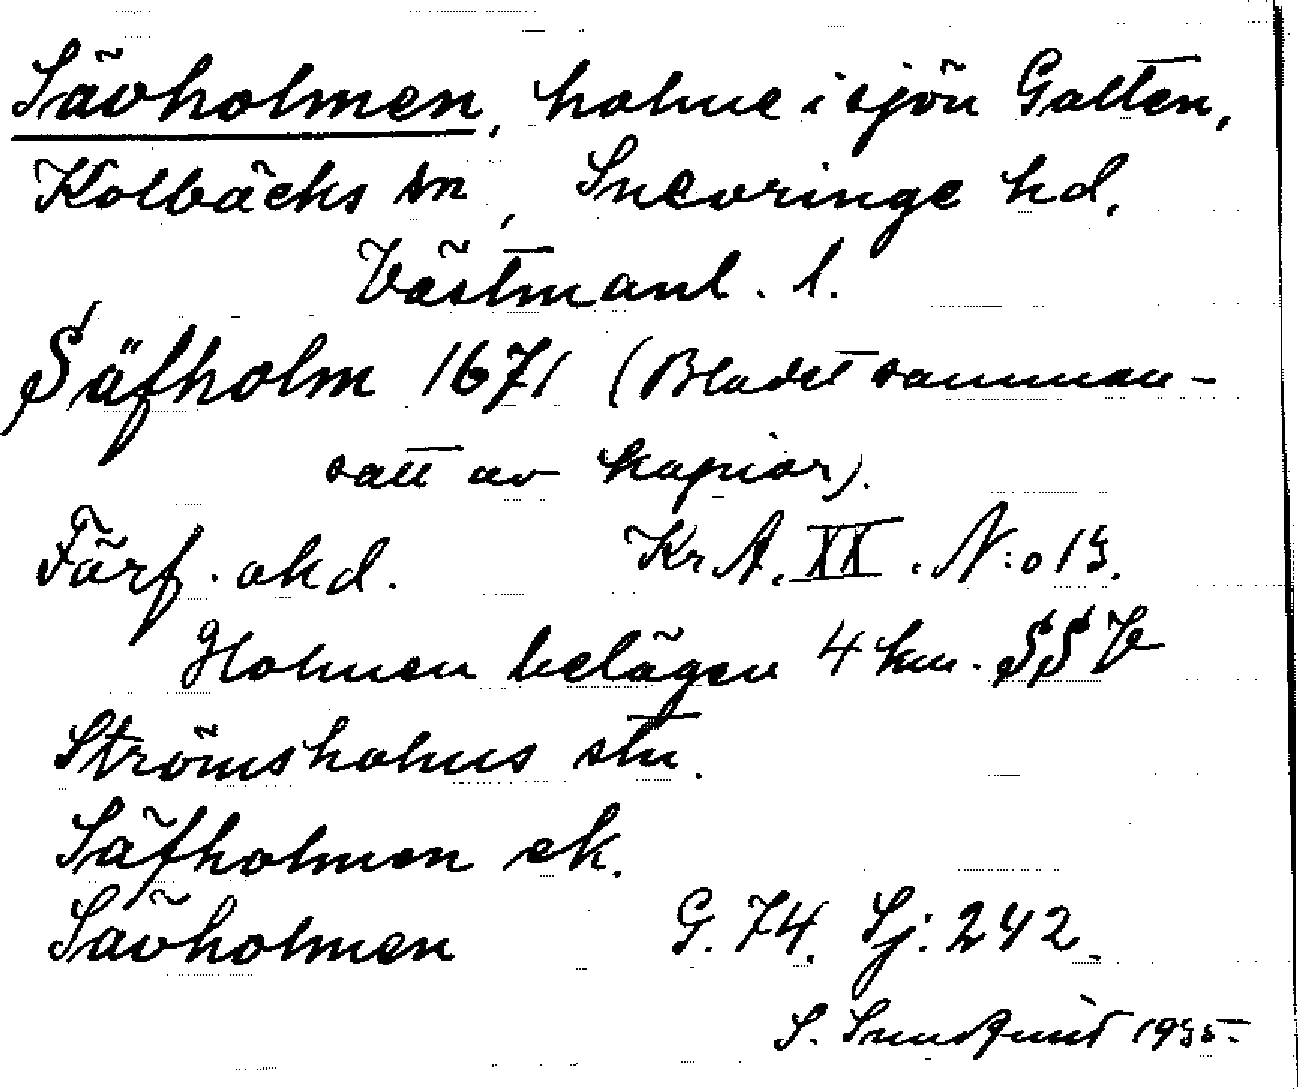 Sävholmen, holme i sjön Galten,
Kolbäcks sn, Snevringe hd,
Västmanl. l.
Säfholm 1671 (Bladet samman-
satt av kopior).
Förf. okd. Kr A. XX. N:o 13.
Holmen belägen 4 km. SSV
Strömsholms stn.
Säfholmen ek.
Sävholmen G. 74. Sj: 242.
S. Sundqvist 1935.